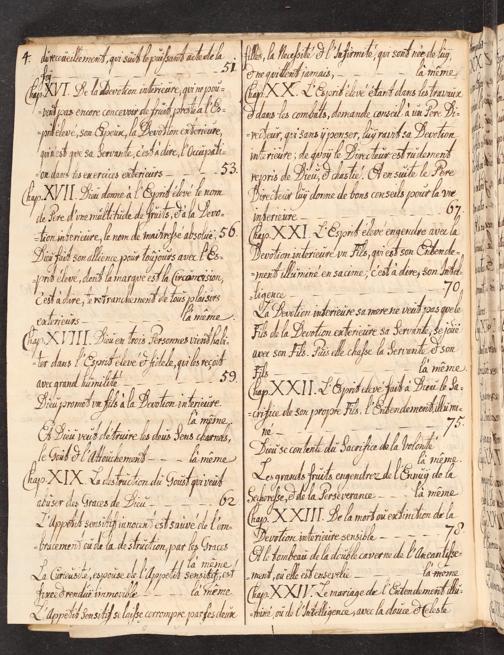 4. du recüeillement, qui suit le puissant acte de la
foy 51.
Chap. XVI. De la Devotion interieure, qui ne pou-
=vant pas encore concevoir de fruit, preste à l'Es-
=prit élevé, son Epoux, la Devotion exterieure,
qui n'est que sa Servante, c'est à dire, l'Occupati-
on dans les exercices exterieurs 53.
Chap. XVII. Dieu donne à l'Esprit élevé le nom
de Pere d'une multitude de fruits, et à la Devo-
=tion interieure, le nom de maitresse absolüe; 56.
Dieu fait son allience pour toujours avec l'Es-
prit élevé, dont la marque est la Circoncision,
C'est à dire, le retranchement de tous plaisirs
exterieurs la même
Chap. XVIII. Dieu en trois Personnes vient habi-
ter dans l'Esprit élevé et fidele, qui les reçoit
avec grand humilité 59.
Dieu promet un fils à la Devotion interieure.
la même
Et Dieu veut détruire les deux Sens charnels,
le Goût et l'Attouchement la même.
Chap. XIX. La destruction du Goust qui veut
abüser des Graces de Dieu 62
L'Appetit sensitif innocent est sauvé de l'em-
=brasement ou de la destruction, par les Graces
la même
La Curiosité, espouse de l'Appetit sensitif, est
fixée et rendüe immobile la même
L'Appetit Sensitif se laisse corrompre par ses deux
filles, la Necessité et l'Infirmité, qui sont nées de luy,
et ne quittent jamais, la même
Chap. XX. L'Esprit élevé étant dans les travaux
et dans les combats, demande conseil à un Pere Di-
=recteur, qui sans y penser, luy ravit sa Devotion
intérieure; de quoy le Directeur est rudement
repris de Dieu, et chastié. Et en suite le Pere
Directeur luy donne de bons conseils pour la vie
interieure 67.
Chap. XXI. L'Esprit élevé engendre avec la
Devotion interieure un Fils, qui est son Entende-
=ment illuminé en sa cime; c'est à dire, son Intel-
=ligence 70.
La Devotion intérieure sa mere ne veut pas que le
Fils de la Devotion exterieure sa Servante, se joüe
avec son Fils. Puis elle chasse la Servante et son
Fils la même.
Chap. XXII. L'Esprit élevé fait à Dieu le Sa-
=crifice de son propre Fils. l'Entendement illumi-
né 75.
Dieu se contente du Sacrifice de la Volonté
la même.
Les grands fruits engendrez de l'Ennüy de la
Secheresse, et de la Perseverance la même.
Chap. XXIII. De la mort ou extinction de la
Devotion intérieure sensible 78.
Et le tombeau de la double caverne de l'Aneantisse-
=ment, où elle est ensevelie la même
Chap. XXIV. Le mariage de l'Entendement illu-
=miné, ou de l'Intelligence, avec la douce et celeste